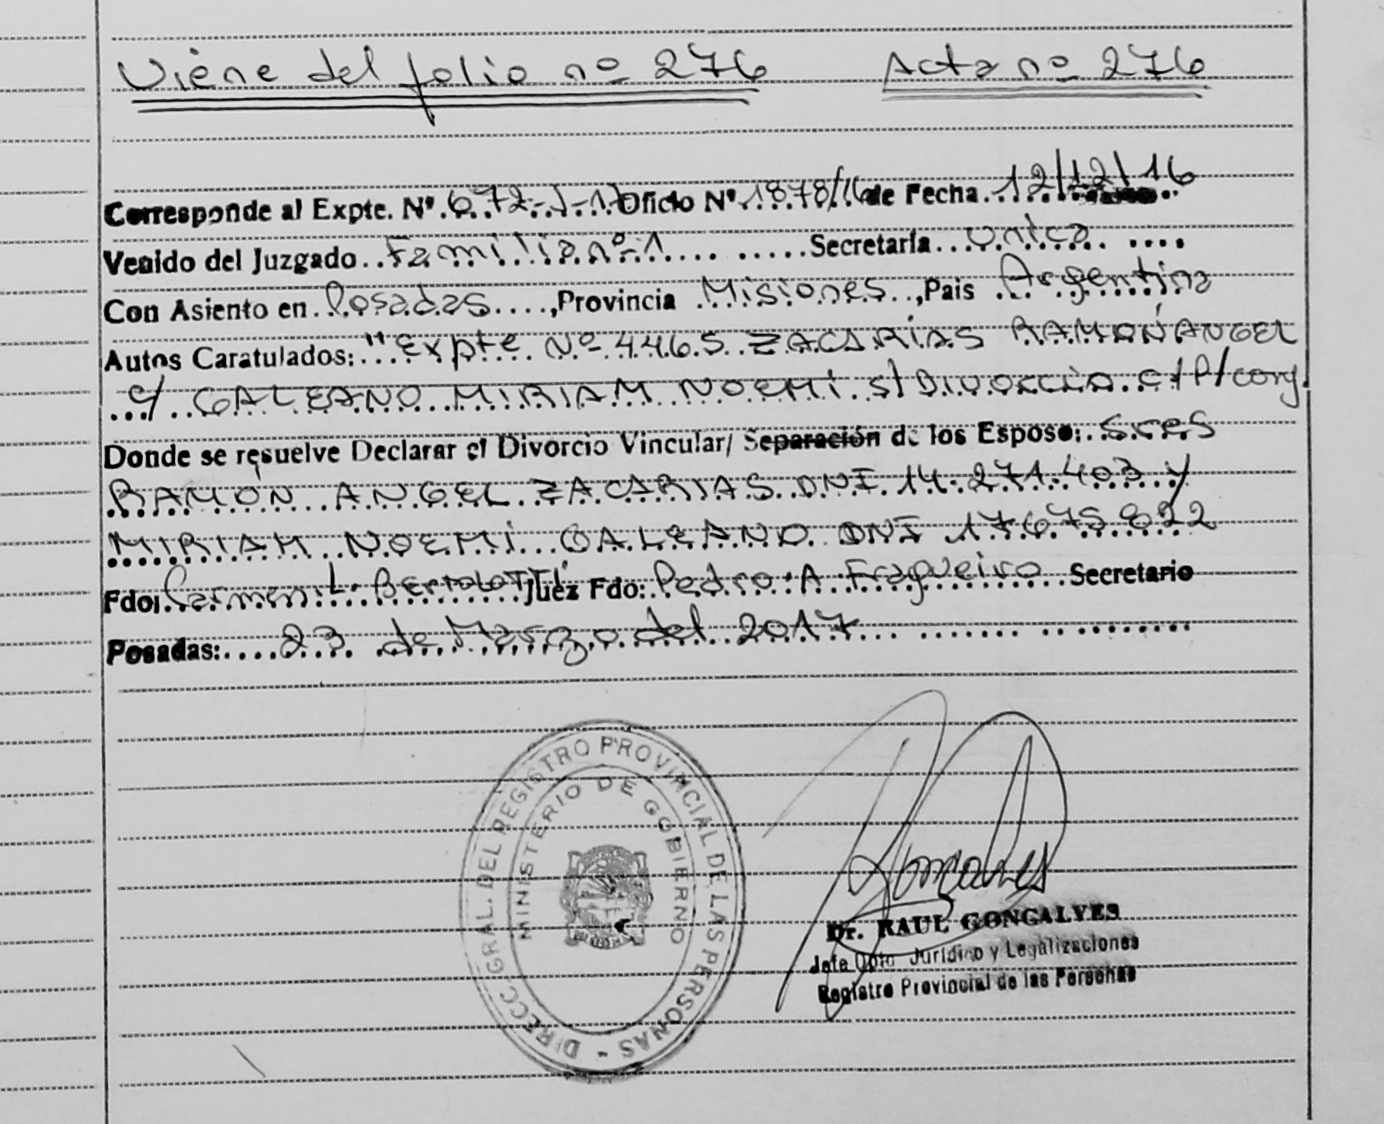 Viene del folio nº 276 Acta nº 276
Corresponde al Expte. Nº 672-J-17 Oficio Nº 1878/16 de Fecha 12/12/16
Venido del Juzgado Familia nº 1 Secretaría Unica
Con Asiento en Posadas, Provincia Misiones, Pais Argentina
Autos Caratulados: "Expte Nº 4465 ZACARIAS RAMÓN ANGEL
c/ GALEANO MIRIAM NOEMI s/ DIVORCIO c/P/conj.
Donde se resuelve Declarar el Divorcio Vincular/ Separación de los Esposo: Sres
RAMÓN ANGEL ZACARIAS DNI 14.271.403 y
MIRIAM NOEMI GALEANO DNI 17.675.822
Fdo: Carmen L. Bertolotti Juez Fdo: Pedro A Fragueiro Secretario
Posadas: 23 de Marzo del 2017
DIRECC. GRAL. DEL REGISTRO PROVINCIAL DE LAS PERSONAS -
MINISTERIO DE GOBIERNO
Goncalves
Dr. RAUL GONCALVES
Jefe Dpto Juridico y Legalizaciones
Registro Provincial de las Personas